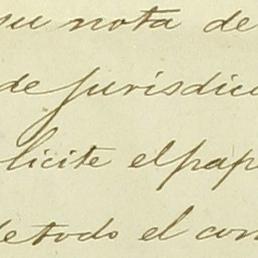 su nota de
de jurisdic
licite el pap
de todo el con